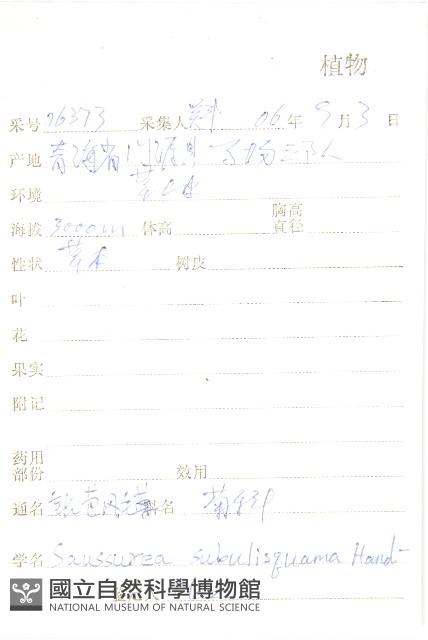 植物
采号 06373 采集人 06 年 9 月 3 日
产地 青海省门源县
环境
海拔 3000m 体高 胸高直径
性状 草本 树皮
叶
花
果实
附记
药用部份 效用
通名 科名 菊科
学名 Saussurea subulisquama Hand-
國立自然科學博物館
NATIONAL MUSEUM OF NATURAL SCIENCE